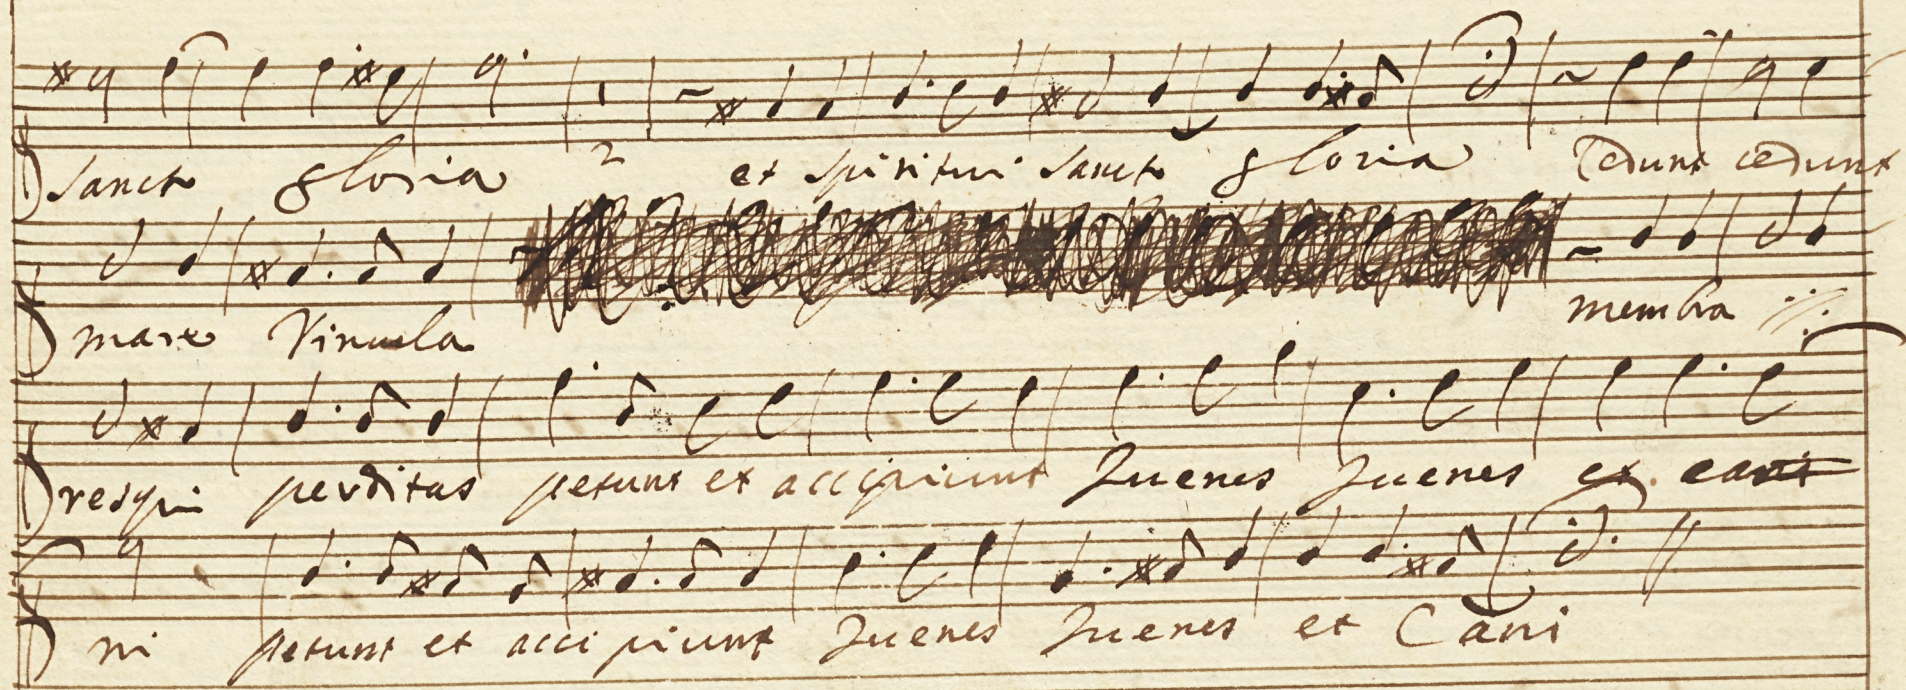 Sancto gloria 2 et spiritui Sancto gloria Cedunt cedunt
mare Vincula membra
resqui perditas petunt et accipiunt Juenes Juenes et cani
ni petunt et accipiunt Juenes Juenes et Cani